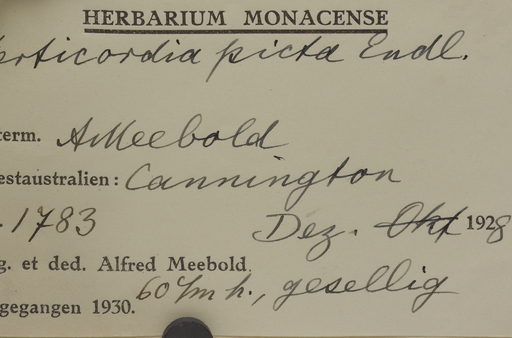 HERBARIUM MONACENSE
erticordia picta Endl.
term. AMeebold
estaustralien: Cannington
. 1783 Dez. Okt 1928
g. et ded. Alfred Meebold.
60 cm h., gesellig
gegangen 1930.